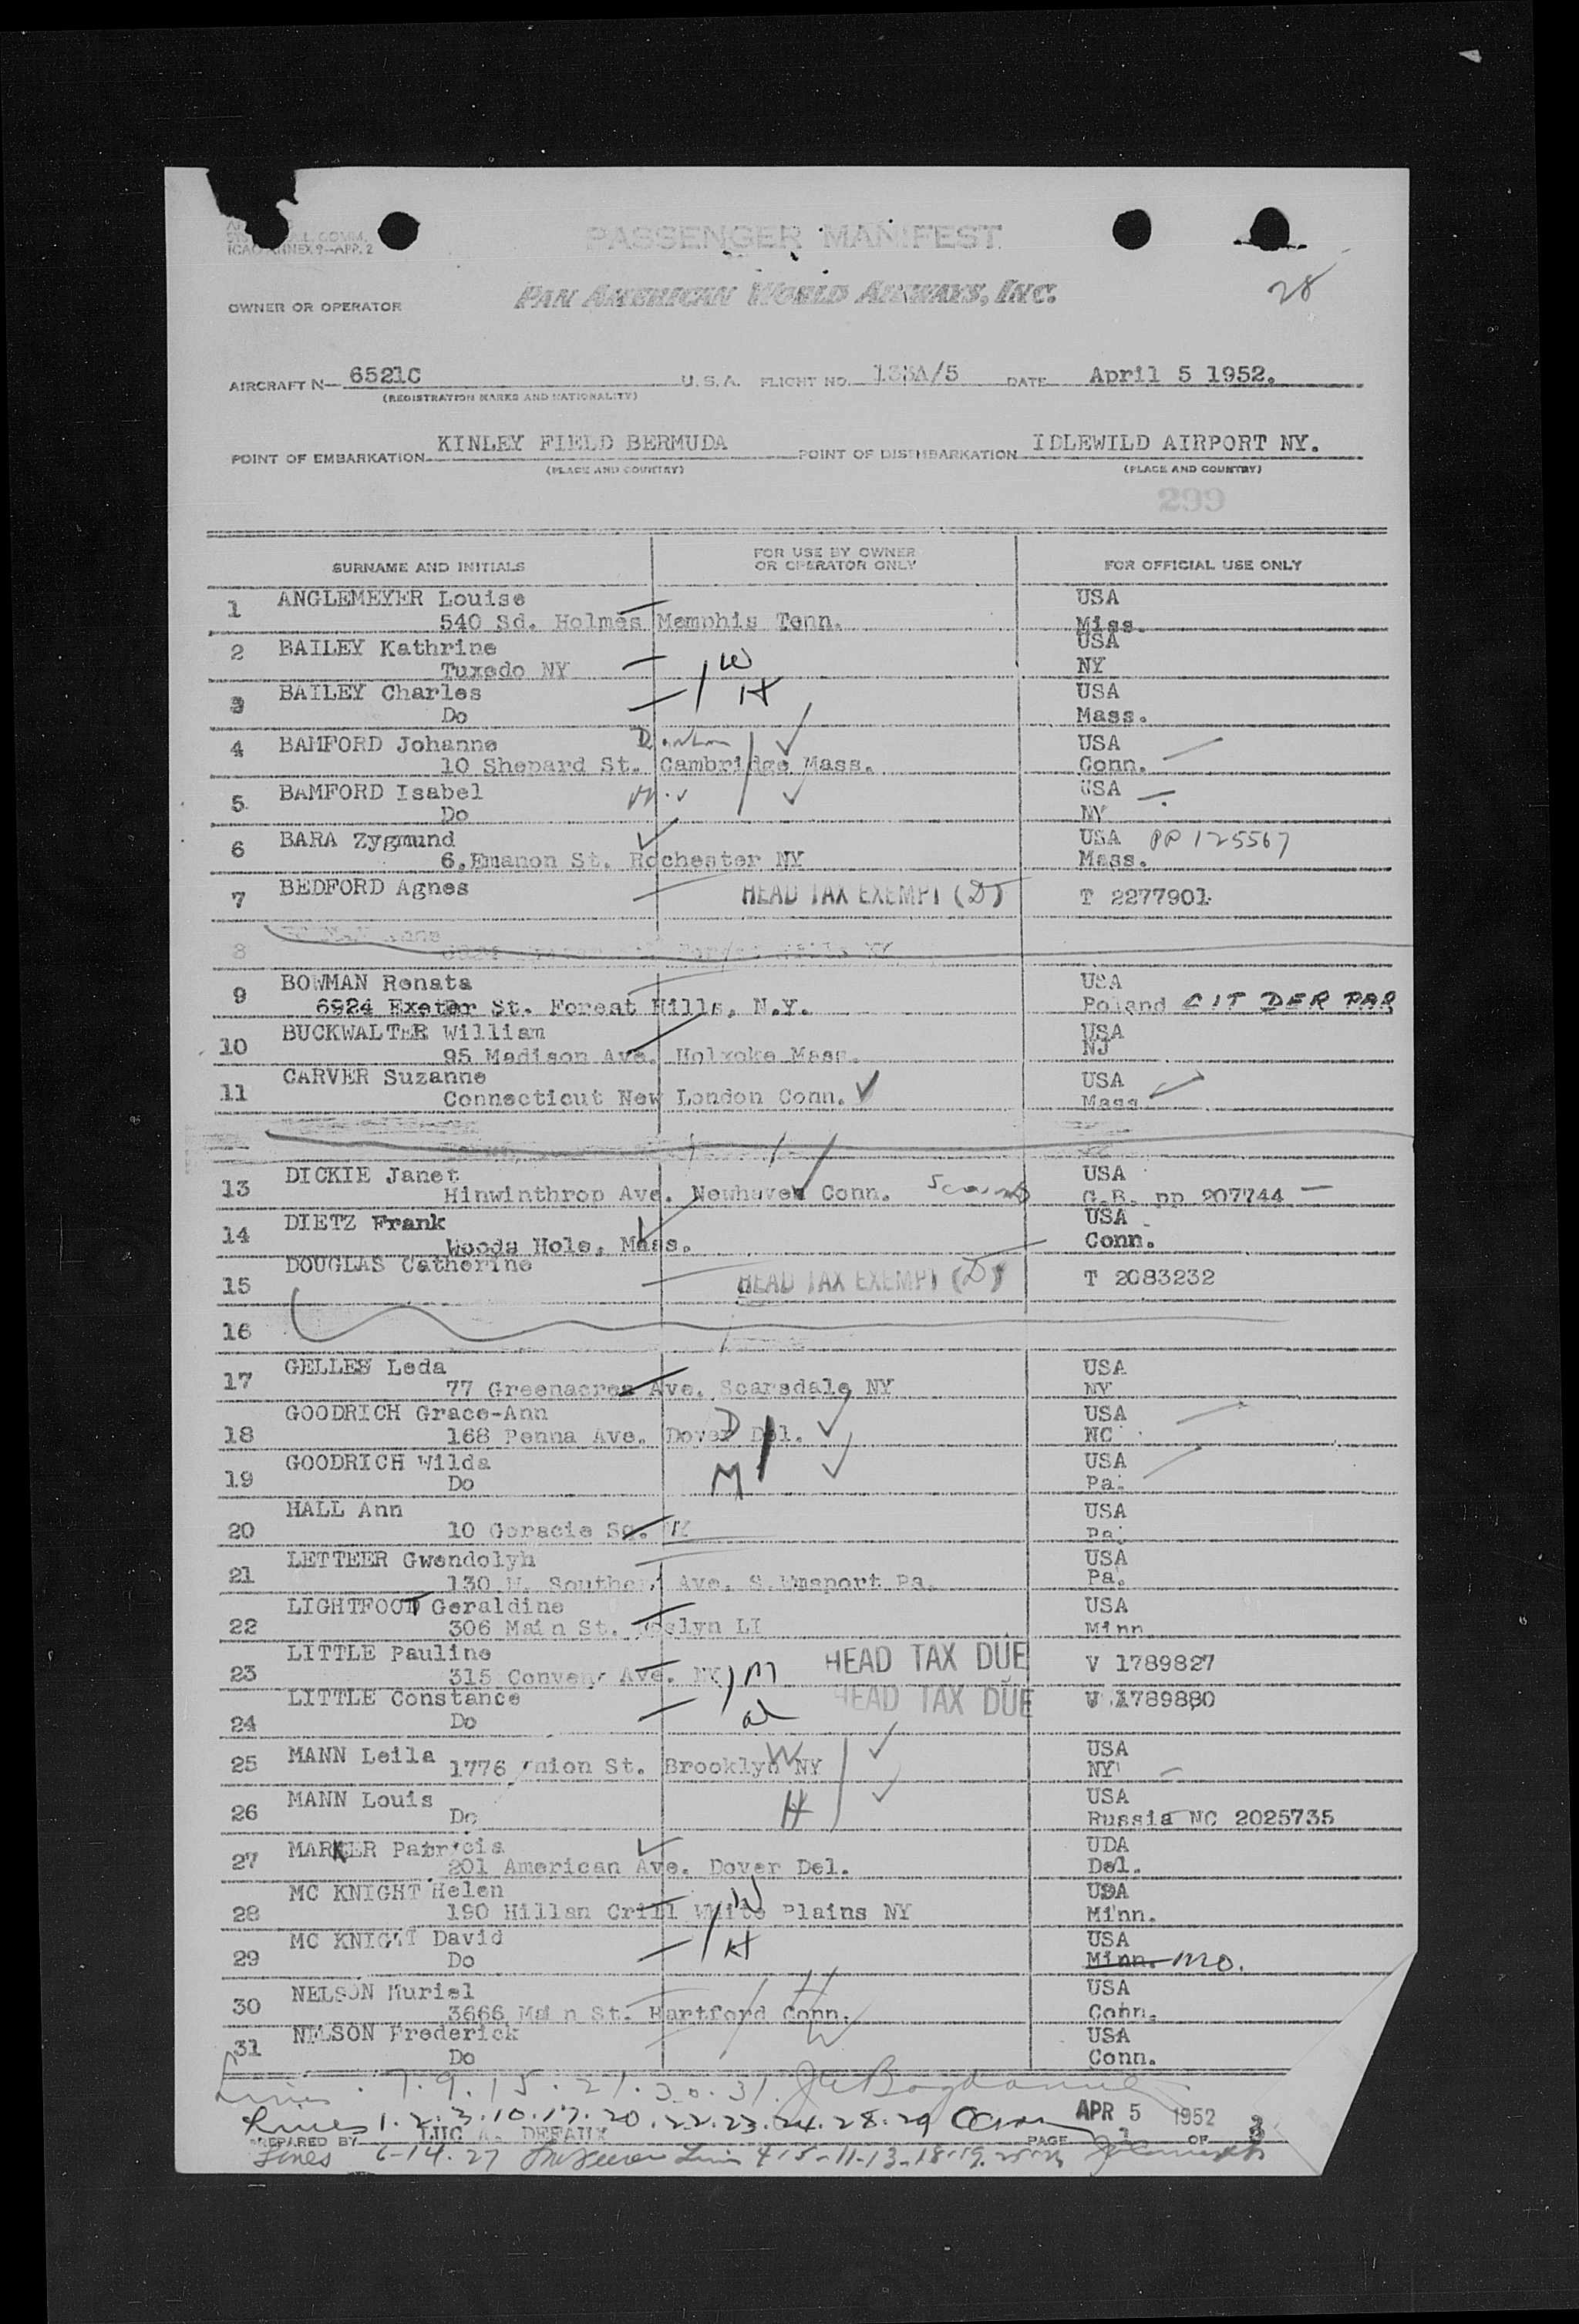 ICAO ANNEX 9-APP. 2
PASSENGER MANIFEST
28
OWNER OR OPERATOR PAN AMERICAN WORLD AIRWAYS, INC.
AIRCRAFT N- 6521C U.S.A. FLIGHT NO. DATE April 5 1952.
(REGISTRATION MARKS AND NATIONALITY)
POINT OF EMBARKATION KINLEY FIELD BERMUDA POINT OF DISEMBARKATION IDLEWILD AIRPORT NY.
(PLACE AND COUNTRY) (PLACE AND COUNTRY)
299
SURNAME AND INITIALS FOR USE BY OWNER OR OPERATOR ONLY FOR OFFICIAL USE ONLY
1 ANGLEMEYER Louise USA
540 Sd. Holmes Memphis Tenn. Miss.
2 BAILEY Kathrine USA
Tuxedo NY W NY
3 BAILEY Charles H USA
Do Mass.
4 BAMFORD Johanne USA
10 Shepard St. Cambridge Mass. Conn.
5 BAMFORD Isabel USA
Do NY
6 BARA Zygmund USA PP 125567
6,Emanon St. Rochester NY Mass.
7 BEDFORD Agnes HEAD TAX EXEMPT (D) T 2277901
8
9 BOWMAN Renata USA
6924 Exeter St. Forest Hills, N.Y. Poland CIT DER PAR
10 BUCKWALTER William USA
95 Madison Ave. Holyoke Mass. NJ
11 CARVER Suzanne USA
Connecticut New London Conn. Mass
13 DICKIE Janet USA
Hinwinthrop Ave. Newhaven Conn. G.B. pp 207744
14 DIETZ Frank USA
Woods Hole, Mass. Conn.
15 DOUGLAS Catherine HEAD TAX EXEMPT (D) T 2083232
16
17 GELLES Leda USA
77 Greenacres Ave. Scarsdale NY NY
18 GOODRICH Grace-Ann D USA
168 Penna Ave. Dover Del. NC
19 GOODRICH Wilda USA
Do M Pa.
20 HALL Ann USA
10 Goracie Sq. NY Pa.
21 LETTEER Gwendolyn USA
130 Southern Ave. S. Pa. Pa.
22 LIGHTFOOT Geraldine USA
306 Main St. Roslyn LI Minn
23 LITTLE Pauline HEAD TAX DUE V 1789827
315 Convent Ave. NY M
24 LITTLE Constance HEAD TAX DUE V 1789880
Do
25 MANN Leila W USA
1776 Union St. Brooklyn NY NY
26 MANN Louis H USA
Do Russia NC 2025735
27 MARKER Patricia UDA
201 American Ave. Dover Del. Del.
28 MC KNIGHT Helen W USA
190 Hillan Crill White Plains NY Minn.
29 MC KNIGHT David H USA
Do Minn. MO.
30 NELSON Muriel H USA
3666 Main St. Hartford Conn. Conn.
31 NELSON Frederick W USA
Do Conn.
Lines 7.9.15.21.30.31
Lines 1.2.3.10.17.20.22.23.24.28.29 APR 5 1952
PREPARED BY LUC A. DEFAUX PAGE 1 OF 3
Lines 6-14.27 4-5-11-13-18-19